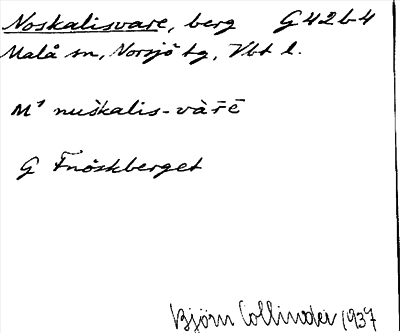 Noskalisvare, berg G42b4
Malå sn, Norsjö tg, Vbt l.
M¹ nuškalis-vàr̄ē
G Fnöskberget
Björn Collinder 1937